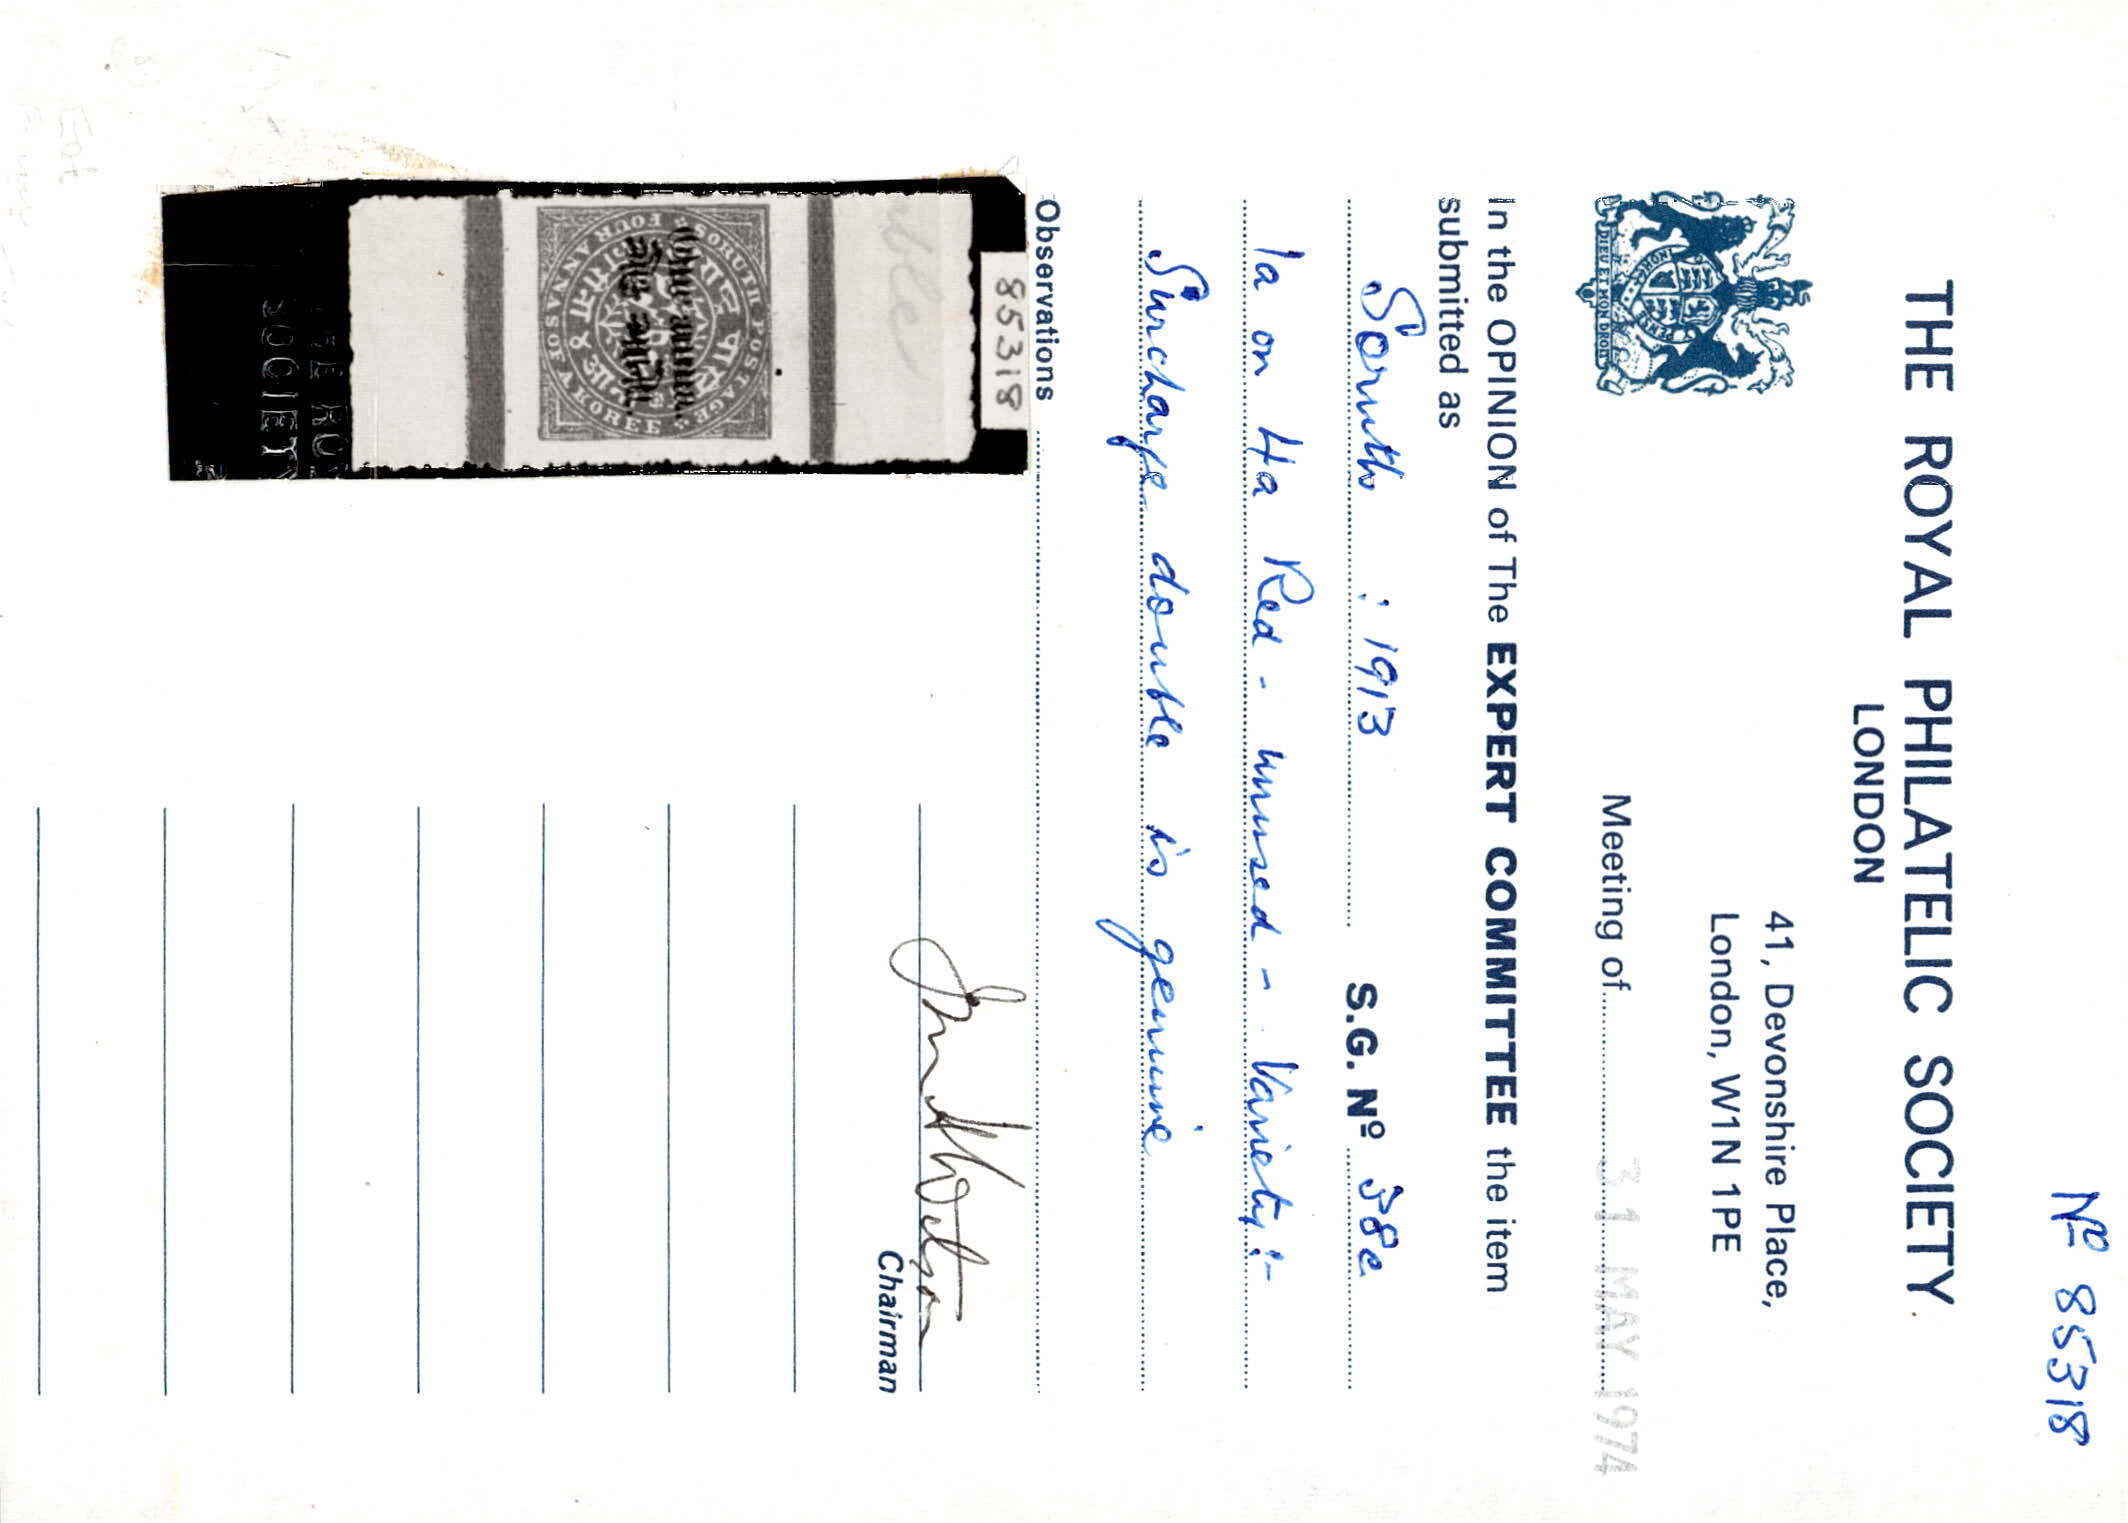 Nº 85318
THE ROYAL PHILATELIC SOCIETY
LONDON
41, Devonshire Place,
London, W1N 1PE
DIEU ET MON DROIT
Meeting of 31 MAY 1974
In the OPINION of The EXPERT COMMITTEE the item
submitted as
Soruth : 1913 S.G. Nº 38c
1a on 4a Red - unused - Variety:-
Surcharge double is genuine
Observations
85318
SORUTH POSTAGE
FOUR ANNAS OF A KOREE
Chairman
SOCIETY